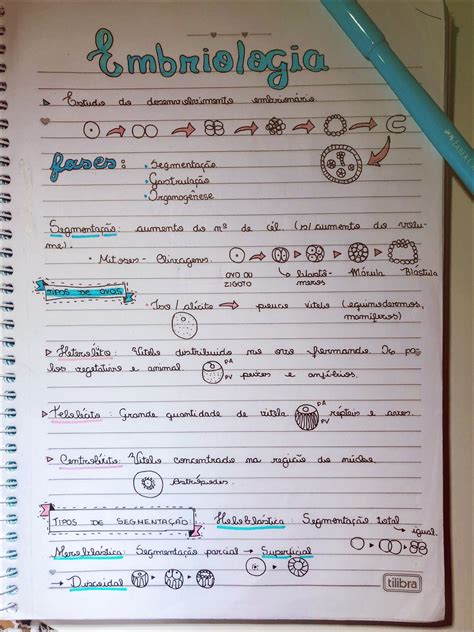 Embriologia
Estudo do desenvolvimento embrionário
fases: • Segmentação
• Gastrulação
• Organogênese
Segmentação: aumento do nº de cél. (s/aumento do volu-
me).
• Mitoses - Clivagens.
OVO OU ZIGOTO
blastô-meros
Mórula
Blástula
TIPOS DE OVOS
• Iso / alécito → pouco vitelo (equinodermos,
mamíferos)
Heterolécito: Vitelo distribuído no ovo formando
os vegetativo e animal. PA PV peixes e anfíbios.
: Grande quantidade de vitelo. PA PV répteis e aves.
: Vitelo concentrado na região do núcleo.
Artrópodes.
TIPOS DE SEGMENTAÇÃO: Holoblástica: Segmentação total → igual.
Meroblástica: Segmentação parcial → Superficial
→ Discoidal
tilibra